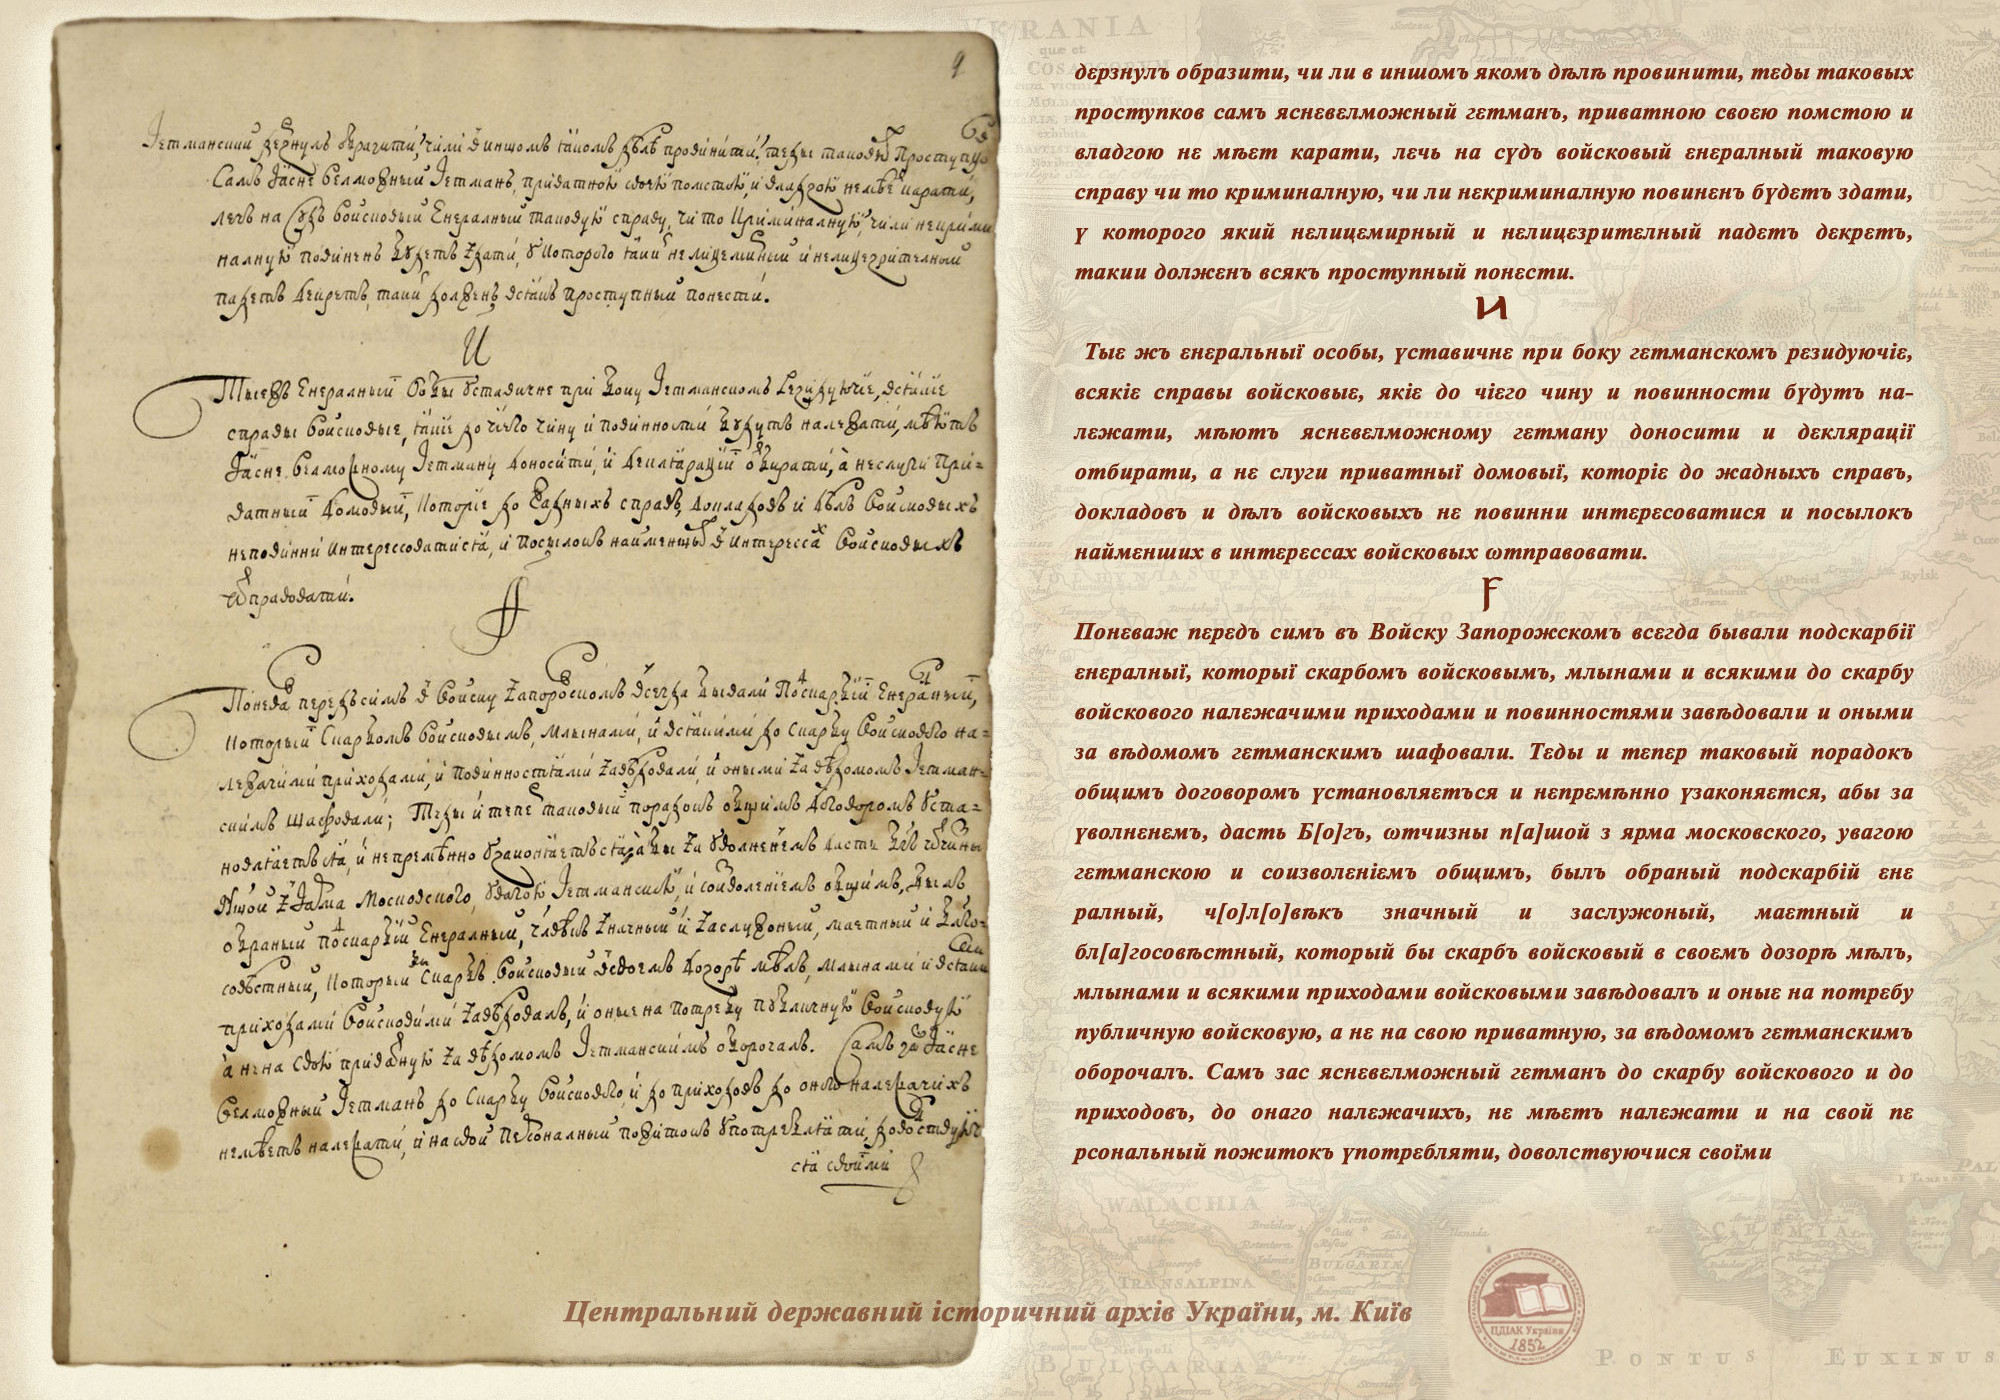 9
Гетманскии дерзнулъ ѡбразити, чили в иншомъ якомъ дѣлѣ провинити, теды таковых проступков
Самъ Ясне Велможный Гетманъ, приватною своею помстою, и владзою не мѣет карати,
лечъ на Судъ Войсковый Енералный таковую справу, чи то Криминалную, чили некрими
налную повиненъ будетъ здати, у которого який нелицемирный и нелицезрителный
падетъ декретъ, такий должен всякъ проступный понести.
И
Тыежъ Енералныї Особы уставичне при боку Гетманскомъ Резидуючїе, всякіе
справы Войсковые, якіе до чіего чину и повинности будутъ належати, мѣютъ
Ясне Велможному Гетману доносити, и деклярації отбирати, а не слуги при=
ватныї домовыї, которїе до жадныхъ справъ, докладовъ и дѣлъ Войсковыхъ
неповинни интерессоватися, и посылокъ найменшых в интересса^х Войсковыхъ
ѿправовати.
Ѳ
Понева^ж передъ симъ в Войску Запорожскомъ всегда бывали Подскарбїї Енералныї,
которыї Скарбомъ Войсковымъ, млынами, и всякими до Скарбу Войскового на=
лежачими приходами, и повинностями завѣдовали, и оными за вѣдомомъ Гетман=
скимъ шафовали; Теды и тепер таковый порадокъ общимъ договоромъ уста=
новляетъся, и непремѣнно узаконяется, абы за уволненемъ дасть Бгъ ѿчизны
ншой з Ярма Московского, увагою Гетманскою, и соизволеніемъ общимъ, былъ
обраный подскарбїй Енералный, члвѣкъ значный и заслужоный, маетный и благо=
совѣстный, который бы Скарбъ Войсковый в своемъ дозорѣ мѣлъ, млынами и всякими
приходами Войсковими завѣдовалъ, и оные на потребу публичную Войсковую
а не на свою приватную за вѣдомомъ Гетманскимъ оборочалъ. Самъ зас Ясне
Велможный Гетманъ до Скарбу Войскового, и до приходовъ до оного належачихъ
не мѣетъ належати, и на свой персоналный пожитокъ употребляти, доволствуючи
ся своїми
дєрзнулъ образити, чи ли в иншомъ якомъ дѣлѣ провинити, тєды таковых
проступков самъ яснєвєлможный гєтманъ, приватною своєю помстою и
владгою нє мѣєт карати, лєчь на сүдъ войсковый єнєралный таковую
справу чи то криминалную, чи ли нєкриминалную повинєнъ бүдєтъ здати,
ү которого який нєлицємирный и нєлицєзритєлный падєтъ дєкрєтъ,
такии должєнъ всякъ проступный понєсти.
И
Тыє жъ єнєральныї особы, үставичнє при боку гєтманскомъ рєзидуючіє,
всякіє справы войсковыє, якіє до чієго чину и повинности бүдутъ на-
лєжати, мѣютъ яснєвєлможному гєтману доносити и дєкляраціï
отбирати, а нє слуги приватныї домовыї, которіє до жадныхъ справъ,
докладовъ и дѣлъ войсковыхъ нє повинни интєрєсоватися и посылокъ
наймєнших в интєрєссах войсковых ѡтправовати.
Ғ
Понєваж пєрєдъ симъ въ Войску Запорожскомъ всєгда бывали подскарбії
єнєралныї, которыї скарбомъ войсковымъ, млынами и всякими до скарбу
войскового налєжачими приходами и повинностями завѣдовали и оными
за вѣдомомъ гєтманскимъ шафовали. Тєды и тєпєр таковый порадокъ
общимъ договоромъ үстановляєтъся и нєпрємѣнно үзаконяєтся, абы за
үволнєнємъ, дасть Б[о]гъ, ѡтчизны п[а]шой з ярма московского, увагою
гєтманскою и соизволєнієм общимъ, былъ обраный подскарбій єнє
ралный, ч[о]л[о]вѣкъ значный и заслужоный, маєтный и
бл[а]госовѣстный, который бы скарбъ войсковый в своємъ дозорѣ мѣлъ,
млынами и всякими приходами войсковыми завѣдовалъ и оныє на потрєбу
публичную войсковую, а нє на свою приватную, за вѣдомомъ гєтманскимъ
оборочалъ. Самъ зас яснєвєлможный гєтманъ до скарбу войскового и до
приходовъ, до онаго налєжачихъ, нє мѣєтъ налєжати и на свой пє
рсональный пожитокъ үпотрєбляти, доволствуючися своїми
Центральний державний історичний архів України, м. Київ
ЦДІАК України
1852